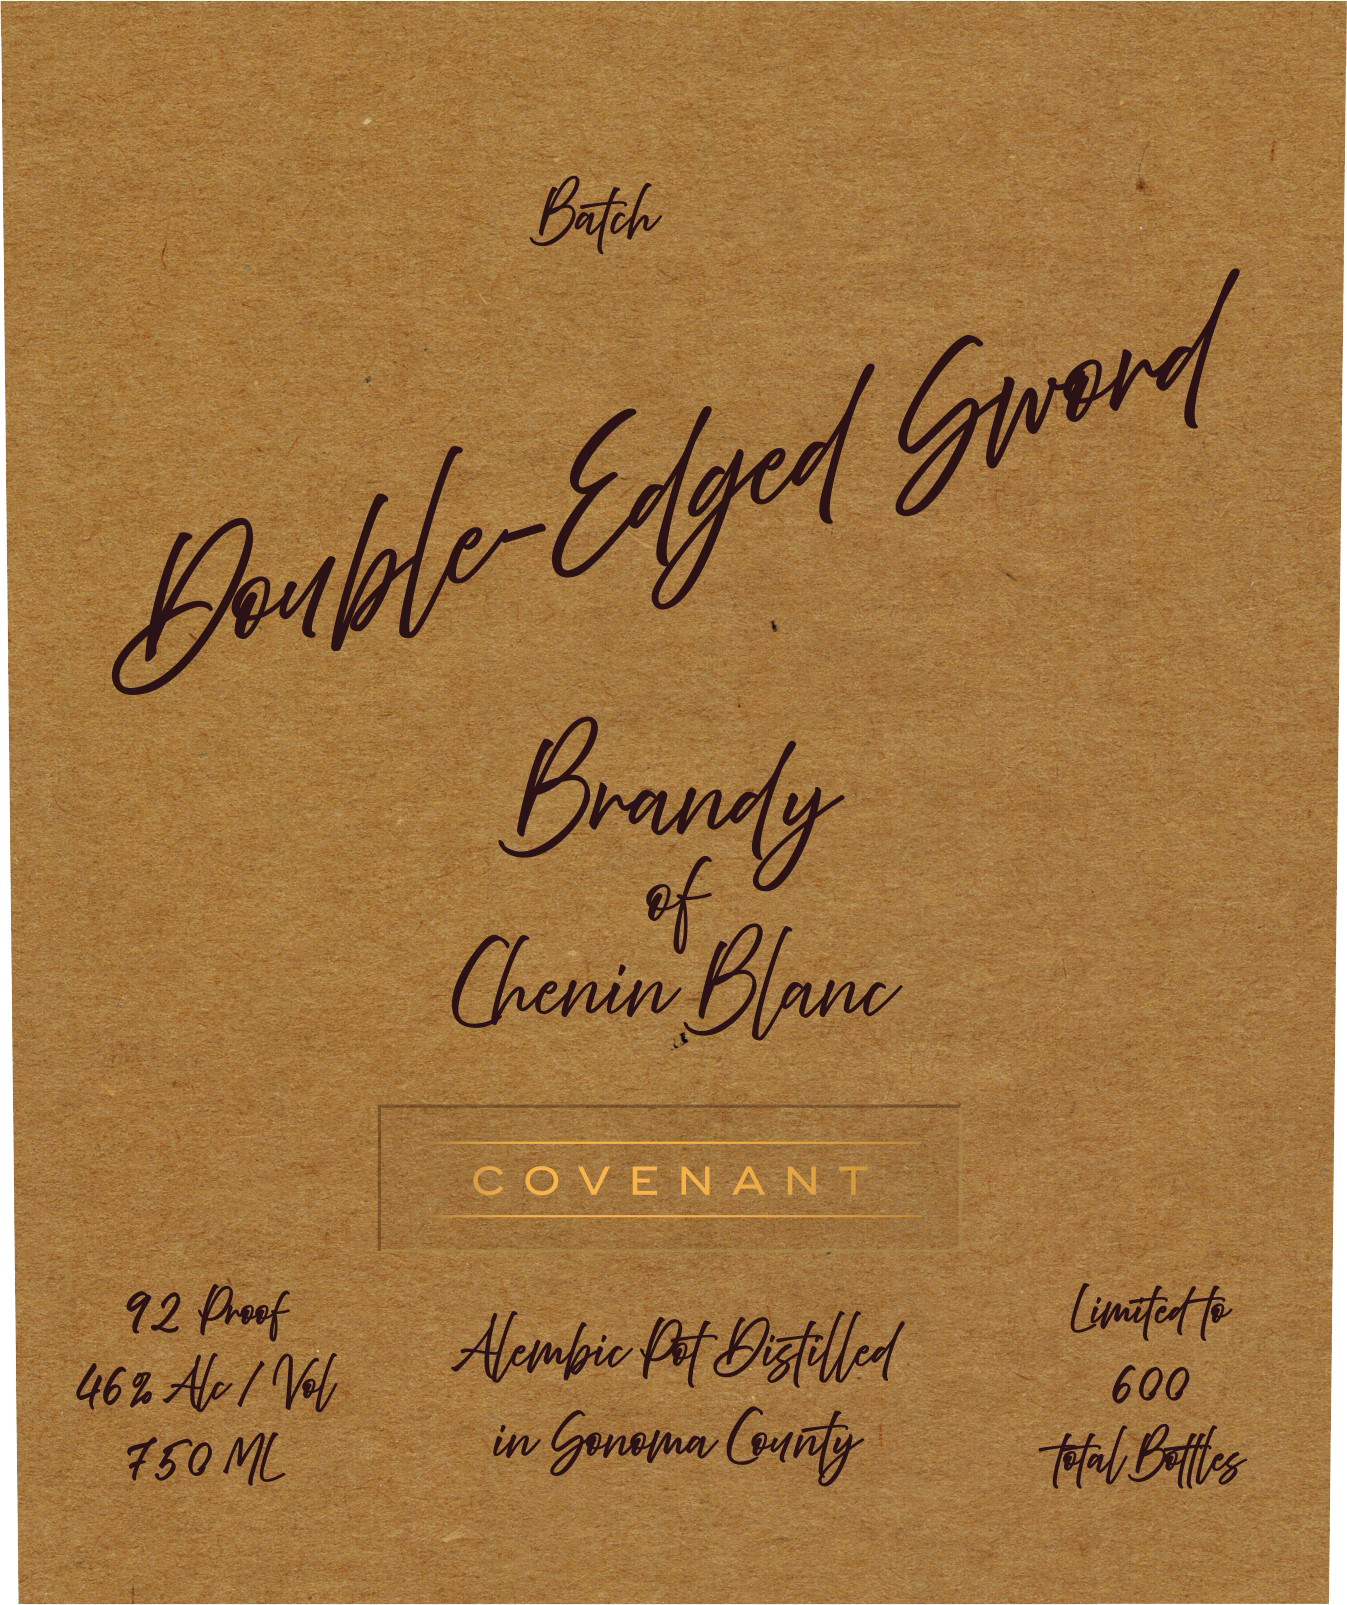 Batch
Double-Edged Sword
Brandy
of
Chenin Blanc
COVENANT
92 Proof
46% Alc / Vol
750 ML
Alembic Pot Distilled
in Sonoma County
Limited to
600
total Bottles